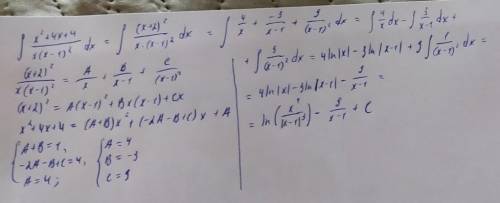 ∫ (x²+4x+4)/(x(x-1)²) dx = ∫ (x+2)²/(x·(x-1)²) dx = ∫ 4/x + (-3)/(x-1) + 9/(x-1)² dx = ∫ 4/x dx - ∫ 3/(x-1) dx +
(x+2)²/(x(x-1)²) = A/x + B/(x-1) + C/(x-1)²
(x+2)² = A(x-1)² + Bx(x-1) + Cx
x²+4x+4 = (A+B)x² + (-2A-B+C)x + A
{ A+B=1,
-2A-B+C=4,
A=4;
{ A=4
B=-3
C=9
+ ∫ 9/(x-1)² dx = 4ln|x| - 3ln|x-1| + 9∫ 1/(x-1)² dx =
= 4ln|x| - 3ln|x-1| - 9/(x-1) =
= ln(x⁴/|x-1|³) - 9/(x-1) + C